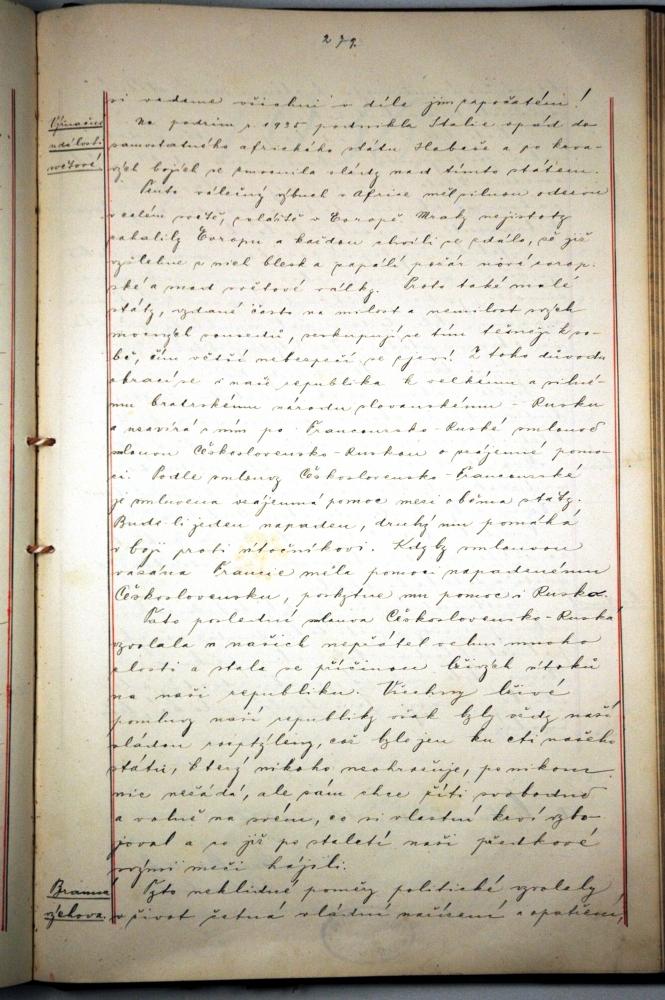 279.
si vedeme všichni v díle jím započatém!
Význačné
události
světové.
Na podzim r. 1935 podnikla Italie výpad do
samostatného afrického státu Habeše a po krva-
vých bojích se zmocnila vlády nad tímto státem.
Tento válečný výbuch v Africe měl silnou odezvu
v celém světě, zvláště v Evropě. Mraky nejistoty
zahalily Evropu a každou chvíli se zdálo, že již
vyšlehne z nich blesk a zapálí požár nové evrop-
ské a snad světové války. Proto také malé
státy, vydané často na milost a nemilost svých
mocných sousedů, seskupují se tím těsněji k so-
bě, čím větší nebezpečí se zjeví. Z toho důvodu
obrací se i naše republika k velkému a silné-
mu bratrskému národu slovanskému - Rusku
a uzavírá s ním po Francouzsko-Ruské smlouvě
smlouvu Československo-Ruskou o vzájemné pomo-
ci. Podle smlouvy Československo-Francouzské
je smluvena vzájemná pomoc mezi oběma státy.
Bude-li jeden napaden, druhý mu pomáhá
v boji proti útočníkovi. Kdyby smlouvou
vázána Francie měla pomoci napadenému
Československu, poskytne mu pomoc i Rusko.
Tato poslední smlouva Československo-Ruská
vyvolala u našich nepřátel velmi mnoho
zlosti a stala se příčinou lživých útoků
na naši republiku. Všechny lživé
pomluvy naší republiky však byly vždy naší
vládou rozptýleny, což bylo jen ku cti našeho
státu, který nikoho neohrožuje, po nikom
nic nežádá, ale sám chce žíti svobodně
a volně na svém, co si vlastní krví vybo-
joval a co již po staletí naši předkové
svými meči hájili.
Branná
výchova.
Tyto neklidné poměry politické vyvolaly
v život četná vládní nařízení a opatření,